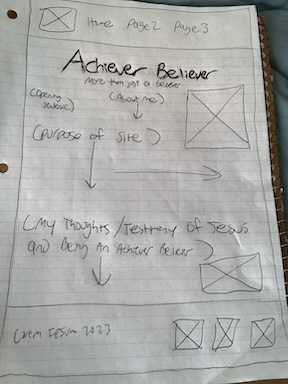 Home Page 2 Page 3
Achiever Believer
More than just a believer
(Opening sentence)
(About me)
(purpose of site)
(My Thoughts / Testimony of Jesus
and Being An Achiever Believer)
Lorem Ipsum 2023